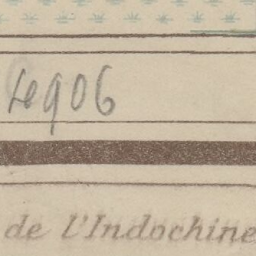 Le 906
de l'Indochine